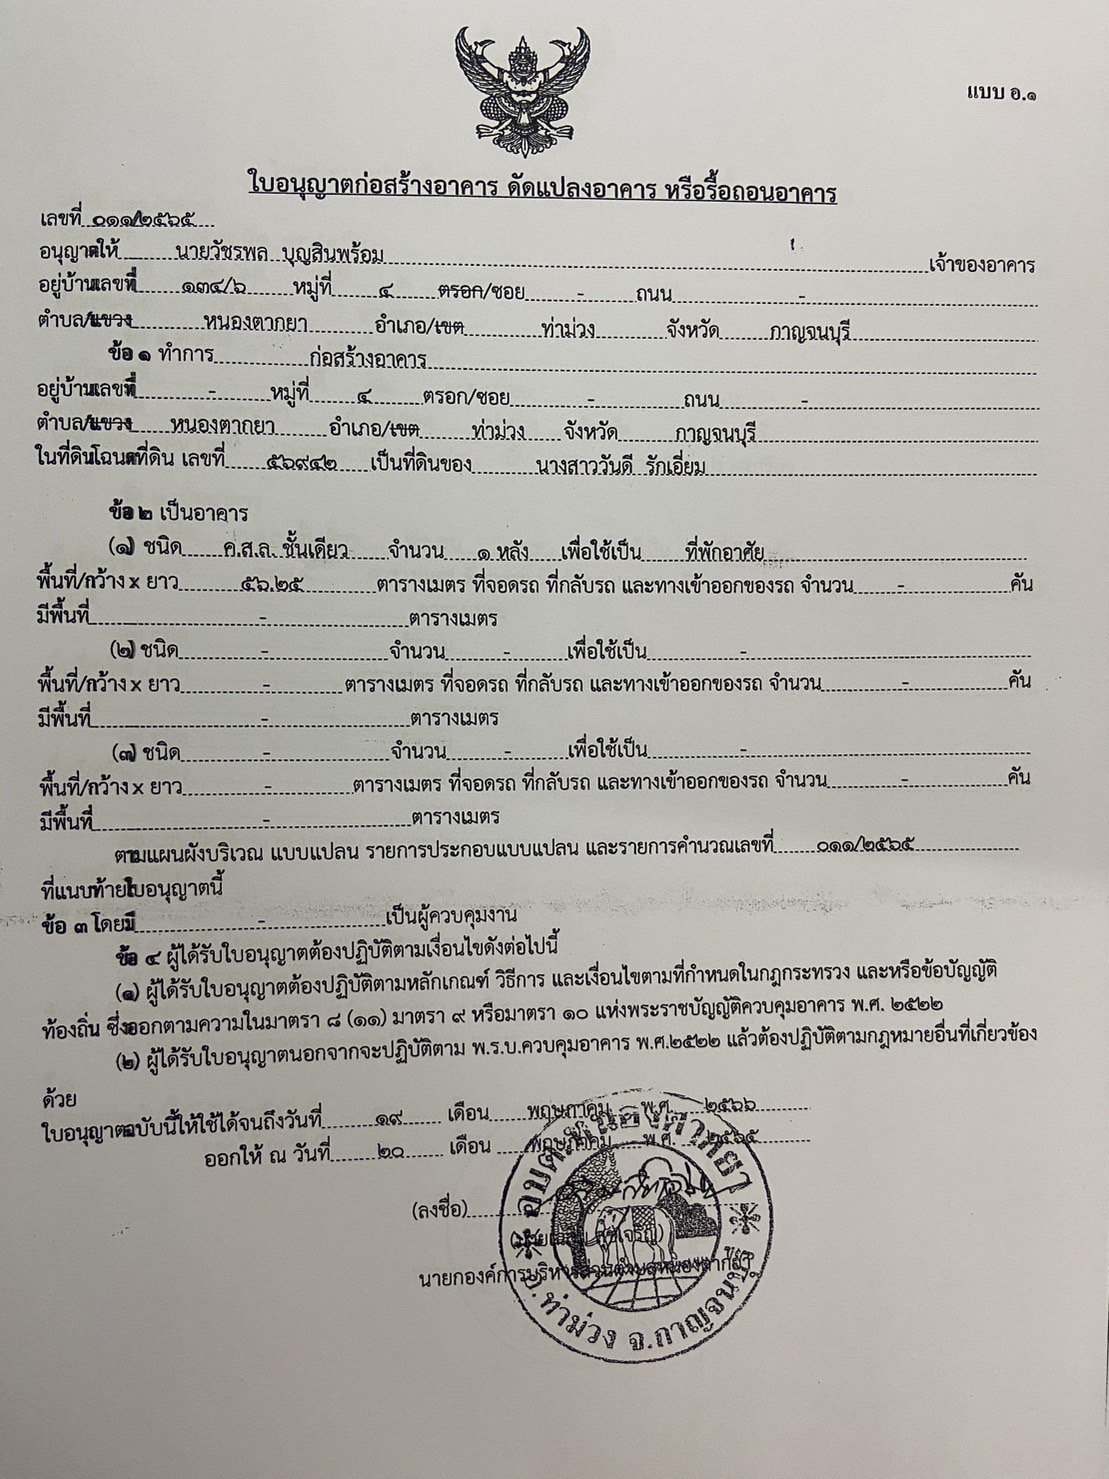 แบบ อ.๑
ใบอนุญาตก่อสร้างอาคาร ดัดแปลงอาคาร หรือรื้อถอนอาคาร
เลขที่ ๐๑๑/๒๕๖๕
อนุญาตให้ นายวัชรพล บุญสินพร้อม เจ้าของอาคาร
อยู่บ้านเลขที่ ๑๓๔/๖ หมู่ที่ ๔ ตรอก/ซอย - ถนน -
ตำบล/แขวง หนองตากยา อำเภอ/เขต ท่าม่วง จังหวัด กาญจนบุรี
ข้อ ๑ ทำการ ก่อสร้างอาคาร
อยู่บ้านเลขที่ - หมู่ที่ ๔ ตรอก/ซอย - ถนน -
ตำบล/แขวง หนองตากยา อำเภอ/เขต ท่าม่วง จังหวัด กาญจนบุรี
ในที่ดินโฉนดที่ดิน เลขที่ ๕๖๙๔๒ เป็นที่ดินของ นางสาววันดี รักเอี่ยม
ข้อ ๒ เป็นอาคาร
(๑) ชนิด ค.ส.ล. ชั้นเดียว จำนวน ๑ หลัง เพื่อใช้เป็น ที่พักอาศัย
พื้นที่/กว้าง x ยาว ๕๖.๒๕ ตารางเมตร ที่จอดรถ ที่กลับรถ และทางเข้าออกของรถ จำนวน - คัน
มีพื้นที่ - ตารางเมตร
(๒) ชนิด - จำนวน - เพื่อใช้เป็น -
พื้นที่/กว้าง x ยาว - ตารางเมตร ที่จอดรถ ที่กลับรถ และทางเข้าออกของรถ จำนวน - คัน
มีพื้นที่ - ตารางเมตร
(๓) ชนิด - จำนวน - เพื่อใช้เป็น -
พื้นที่/กว้าง x ยาว - ตารางเมตร ที่จอดรถ ที่กลับรถ และทางเข้าออกของรถ จำนวน - คัน
มีพื้นที่ - ตารางเมตร
ตามแผนผังบริเวณ แบบแปลน รายการประกอบแบบแปลน และรายการคำนวณเลขที่ ๐๑๑/๒๕๖๕
ที่แนบท้ายใบอนุญาตนี้
ข้อ ๓ โดยมี - เป็นผู้ควบคุมงาน
ข้อ ๔ ผู้ได้รับใบอนุญาตต้องปฏิบัติตามเงื่อนไขดังต่อไปนี้
(๑) ผู้ได้รับใบอนุญาตต้องปฏิบัติตามหลักเกณฑ์ วิธีการ และเงื่อนไขตามที่กำหนดในกฎกระทรวง และหรือข้อบัญญัติ
ท้องถิ่น ซึ่งออกตามความในมาตรา ๘ (๑๑) มาตรา ๙ หรือมาตรา ๑๐ แห่งพระราชบัญญัติควบคุมอาคาร พ.ศ. ๒๕๒๒
(๒) ผู้ได้รับใบอนุญาตนอกจากจะปฏิบัติตาม พ.ร.บ.ควบคุมอาคาร พ.ศ.๒๕๒๒ แล้วต้องปฏิบัติตามกฎหมายอื่นที่เกี่ยวข้อง
ด้วย
ใบอนุญาตฉบับนี้ให้ใช้ได้จนถึงวันที่ ๑๙ เดือน พฤษภาคม พ.ศ. ๒๕๖๖
ออกให้ ณ วันที่ ๒๐ เดือน พฤษภาคม พ.ศ. ๒๕๖๕
(ลงชื่อ)
นายกองค์การบริหารส่วนตำบลหนองตากยา
อบต.หนองตากยา
อ.ท่าม่วง จ.กาญจนบุรี